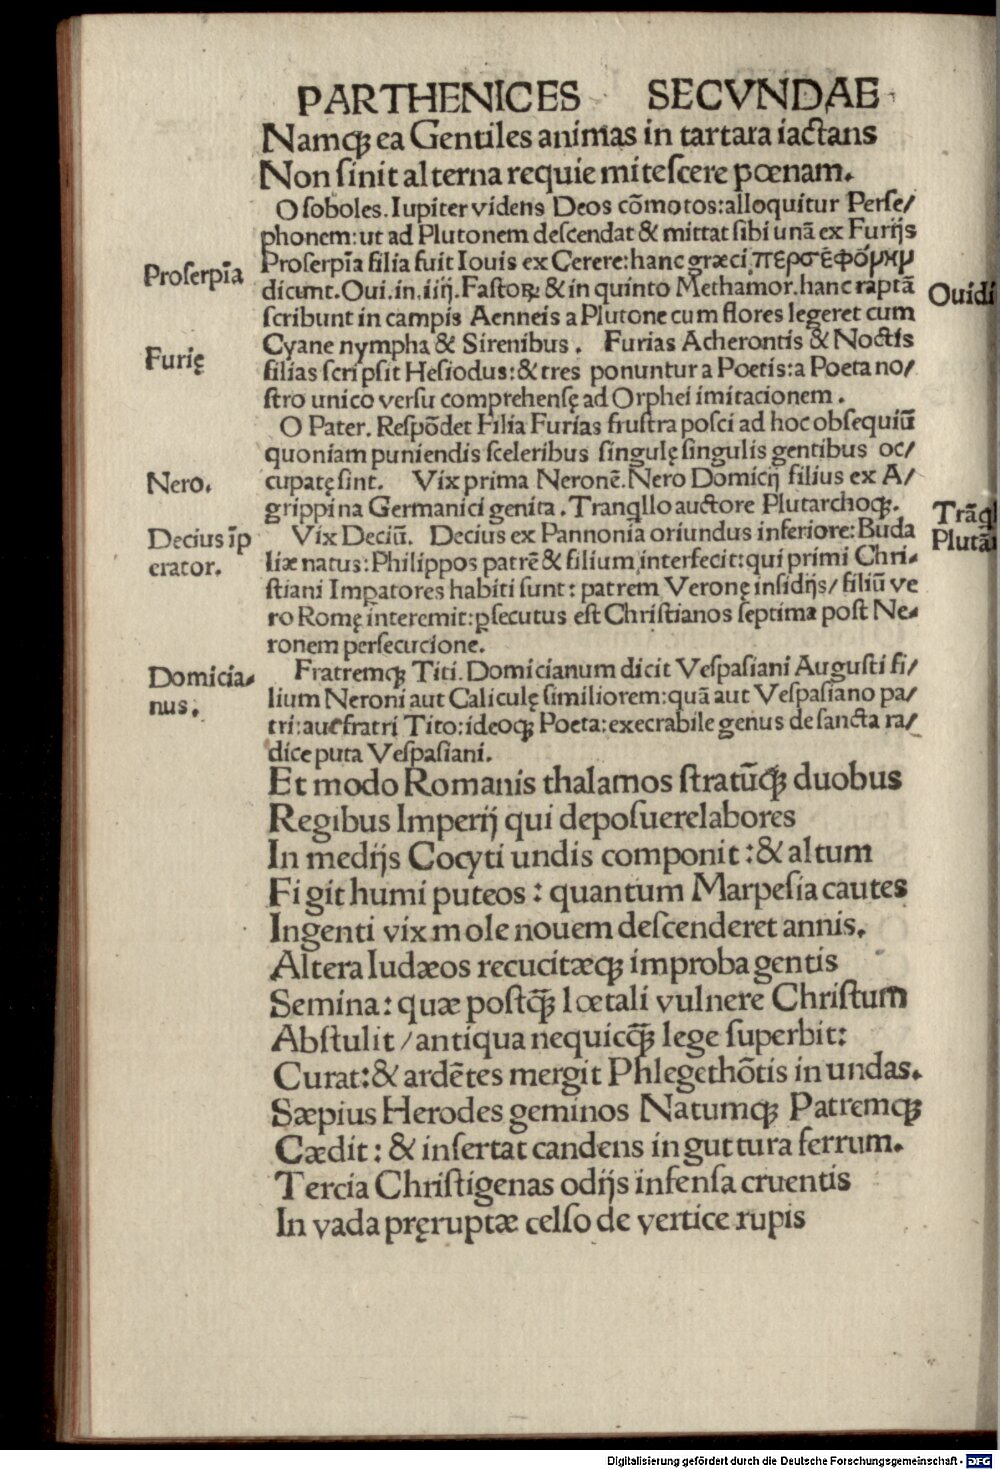 PARTHENICES SECVNDAE
Namqꝫ ea Gentiles animas in tartara iactans
Non sinit alterna requie mitescere pœnam.
O soboles. Iupiter videns Deos cõmotos:alloquitur Perse/
phonem: ut ad Plutonem descendat & mittat sibi unã ex Furijs
Proserpĩa
Proserpĩa filia fuit Iouis ex Cerere: hanc græci
dicunt. Oui. in. iiij. Fastoꝝ & in quinto Methamor. hanc raptã
Ouidi
scribunt in campis Aenneis a Plutone cum flores legeret cum
Cyane nympha & Sirenibus. Furias Acherontis & Noctis
Furię
filias scripsit Hesiodus: & tres ponuntur a Poetis: a Poeta no/
stro unico versu comprehensę ad Orphei imitacionem.
O Pater. Respõdet Filia Furias frustra posci ad hoc obsequiũ
quoniam puniendis sceleribus singulę singulis gentibus oc/
Nero.
cupatę sint. Vix prima Neronẽ. Nero Domicij filius ex A/
grippina Germanici genita. Tranqllo auctore Plutarchoqꝫ.
Trãql
Decius ĩp
Vix Deciũ. Decius ex Pannonia oriundus inferiore: Buda
Plutã
erator.
liæ natus: Philippos patrẽ & filium interfecit: qui primi Chri-
stiani Impatores habiti sunt: patrem Veronę insidijs/ filiũ ve
ro Romę interemit: ꝑsecutus est Christianos septima post Ne-
ronem persecucione.
Domicia-
Fratremqꝫ Titi. Domicianum dicit Vespasiani Augusti fi/
nus.
lium Neroni aut Caliculę similiorem: quã aut Vespasiano pa/
tri: aut fratri Tito: ideoqꝫ Poeta: execrabile genus de sancta ra/
dice puta Vespasiani.
Et modo Romanis thalamos stratũqꝫ duobus
Regibus Imperij qui deposuere labores
In medijs Cocyti undis componit: & altum
Figit humi puteos: quantum Marpesia cautes
Ingenti vix mole nouem descenderet annis.
Altera Iudæos recucitæqꝫ improba gentis
Semina: quæ postqꝫ̃ lœtali vulnere Christum
Abstulit /antiqua nequicqꝫ̃ lege superbit:
Curat: & ardẽtes mergit Phlegethõtis in undas.
Sæpius Herodes geminos Natumqꝫ Patremqꝫ
Cædit: & insertat candens in guttura ferrum.
Tercia Christigenas odijs infensa cruentis
In vada pręruptæ celso de vertice rupis
Digitalisierung gefördert durch die Deutsche Forschungsgemeinschaft - DFG